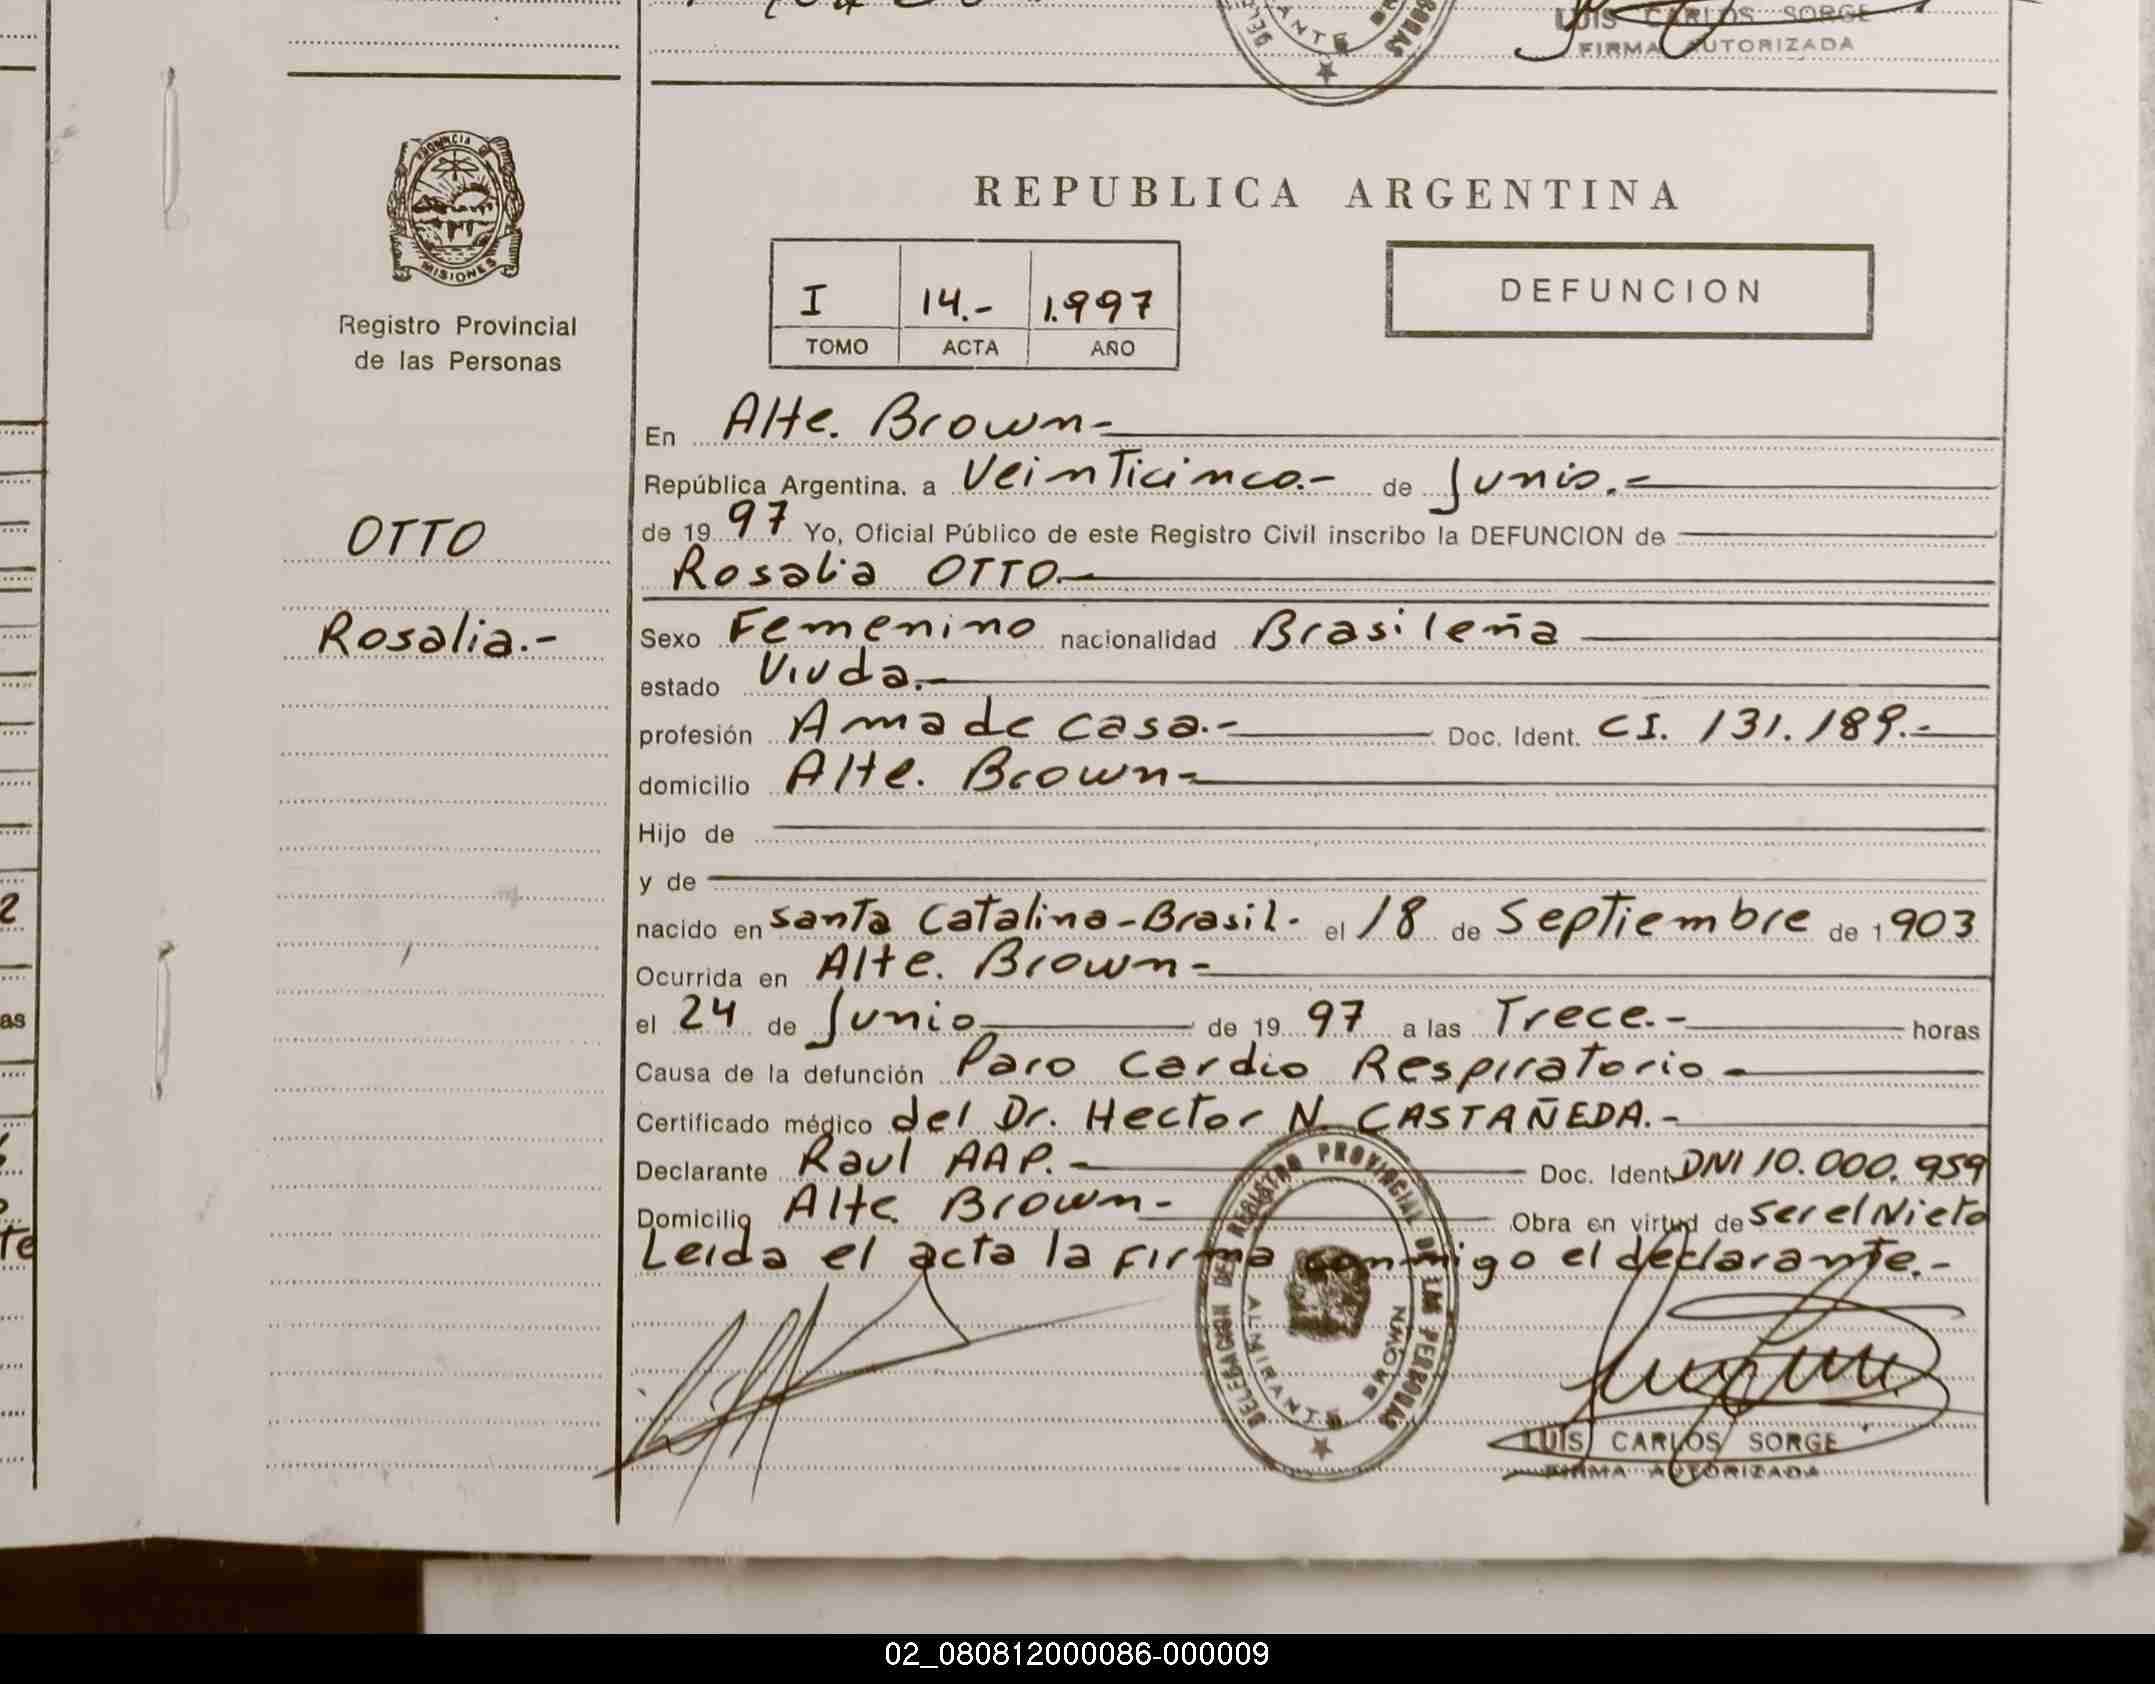 LUIS CARLOS SORGE
FIRMA AUTORIZADA
PROVINCIA DE
MISIONES
Registro Provincial
de las Personas
OTTO
Rosalia.-
REPUBLICA ARGENTINA
I 14.- 1.997
TOMO ACTA AÑO
DEFUNCION
En Alte. Brown-
República Argentina, a Veinticinco.- de Junio.-
de 1997 Yo, Oficial Público de este Registro Civil inscribo la DEFUNCION de
Rosalia OTTO.-
Sexo Femenino nacionalidad Brasileña
estado Viuda.-
profesión Ama de casa.- Doc. Ident. CI. 131.189.-
domicilio Alte. Brown-
Hijo de
y de
nacido en Santa Catalina-Brasil- el 18 de Septiembre de 1903
Ocurrida en Alte. Brown-
el 24 de Junio de 1997 a las Trece.- horas
Causa de la defunción Paro Cardio Respiratorio-
Certificado médico del Dr. Hector N. CASTAÑEDA.-
Declarante Raul AAP.- Doc. Ident. DNI 10.000.959
Domicilio Alte Brown- Obra en virtud de ser el Nieto
Leida el acta la firma conmigo el declarante.-
DELEGACION DEL REGISTRO PROVINCIAL DE LAS PERSONAS
ALMIRANTE BROWN
LUIS CARLOS SORGE
FIRMA AUTORIZADA
02_080812000086-000009